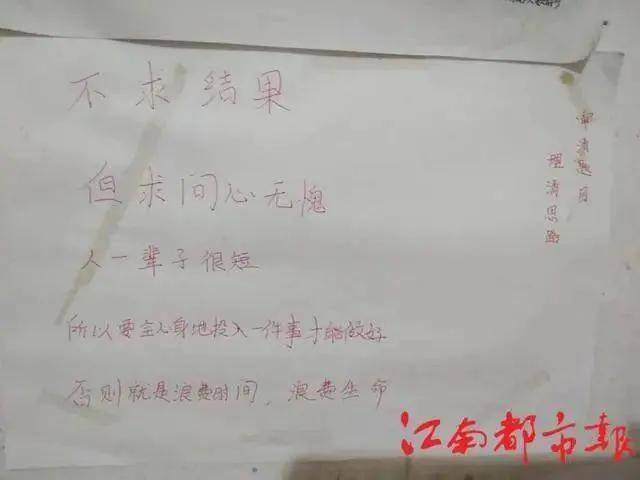 不求结果
但求问心无愧
人一辈子很短
所以要全心身地投入一件事才能做好
否则就是浪费时间，浪费生命
审清题目
理清思路
江南都市报